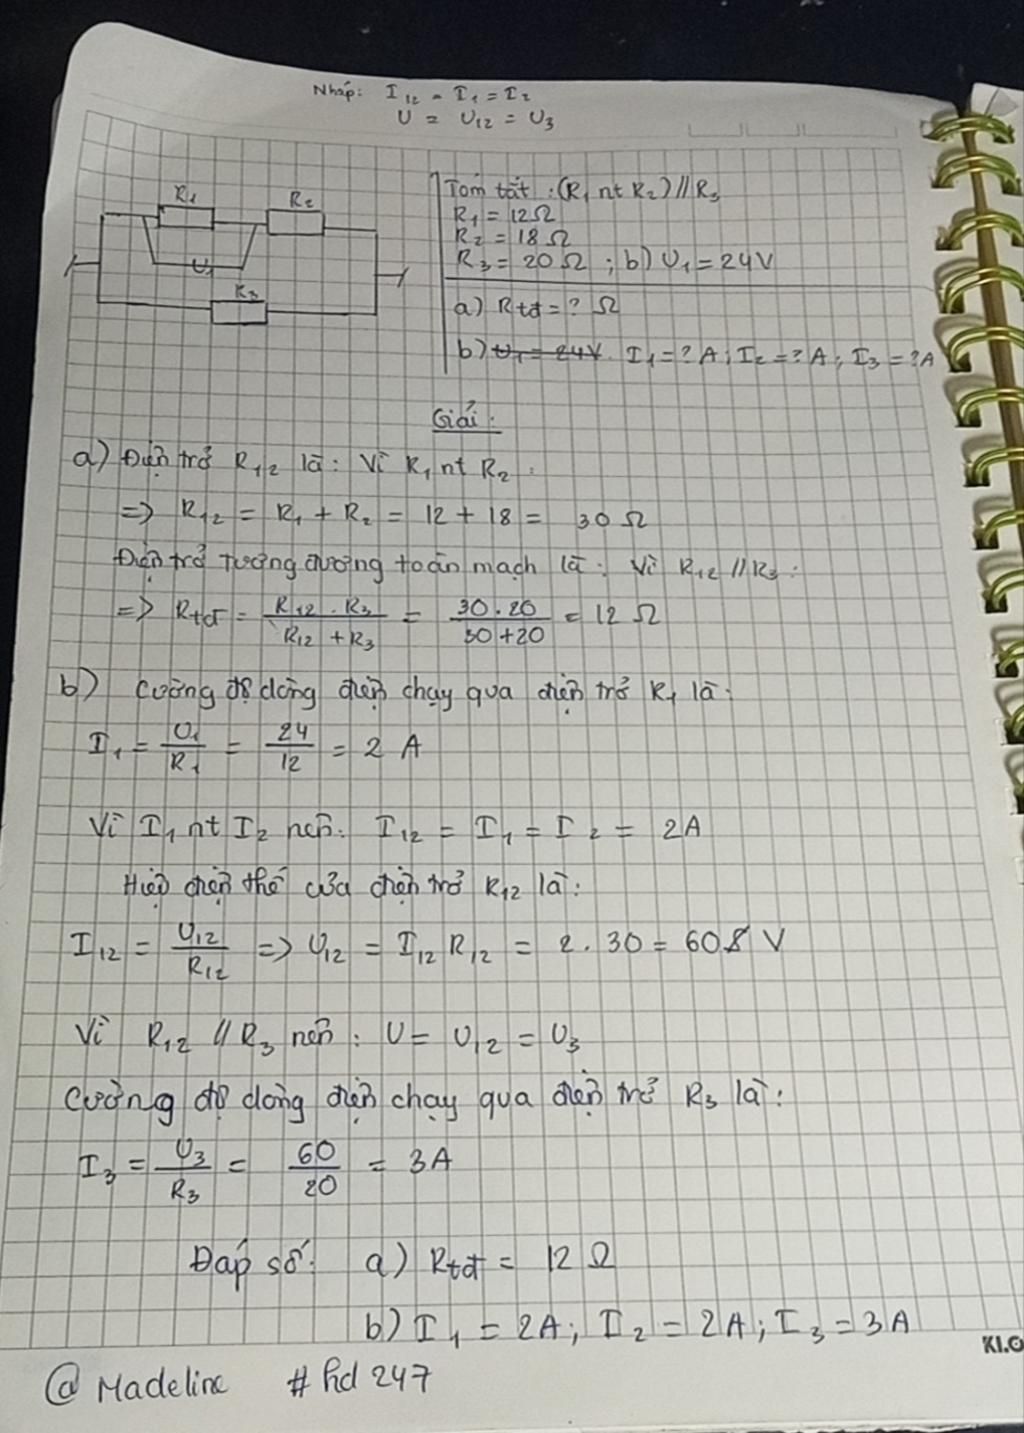 Nháp: I12 = I1 = I2
U = U12 = U3
R1
R2
U1
R3
Tóm tắt: (R1 nt R2) // R3
R1 = 12Ω
R2 = 18Ω
R3 = 20Ω ; b) U1 = 24V
a) Rtđ = ? Ω
b) U1 = 24V. I1 = ? A ; I2 = ? A ; I3 = ? A
Giải:
a) Điện trở R12 là: Vì R1 nt R2:
=> R12 = R1 + R2 = 12 + 18 = 30 Ω
Điện trở tương đương toàn mạch là: Vì R12 // R3:
=> Rtđ = R12 . R3 / R12 + R3 = 30 . 20 / 30 + 20 = 12 Ω
b) Cường độ dòng điện chạy qua điện trở R1 là:
I1 = U1 / R1 = 24 / 12 = 2 A
Vì I1 nt I2 nên: I12 = I1 = I2 = 2A
Hiệu điện thế của điện trở R12 là:
I12 = U12 / R12 => U12 = I12 R12 = 2 . 30 = 60 V
Vì R12 // R3 nên: U = U12 = U3
Cường độ dòng điện chạy qua điện trở R3 là:
I3 = U3 / R3 = 60 / 20 = 3A
Đáp số: a) Rtđ = 12 Ω
b) I1 = 2A; I2 = 2A; I3 = 3A
KLO
@ Madeline # hd 247